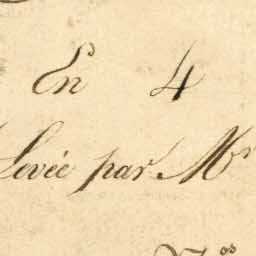 En 4
Levée par Mr
Nos